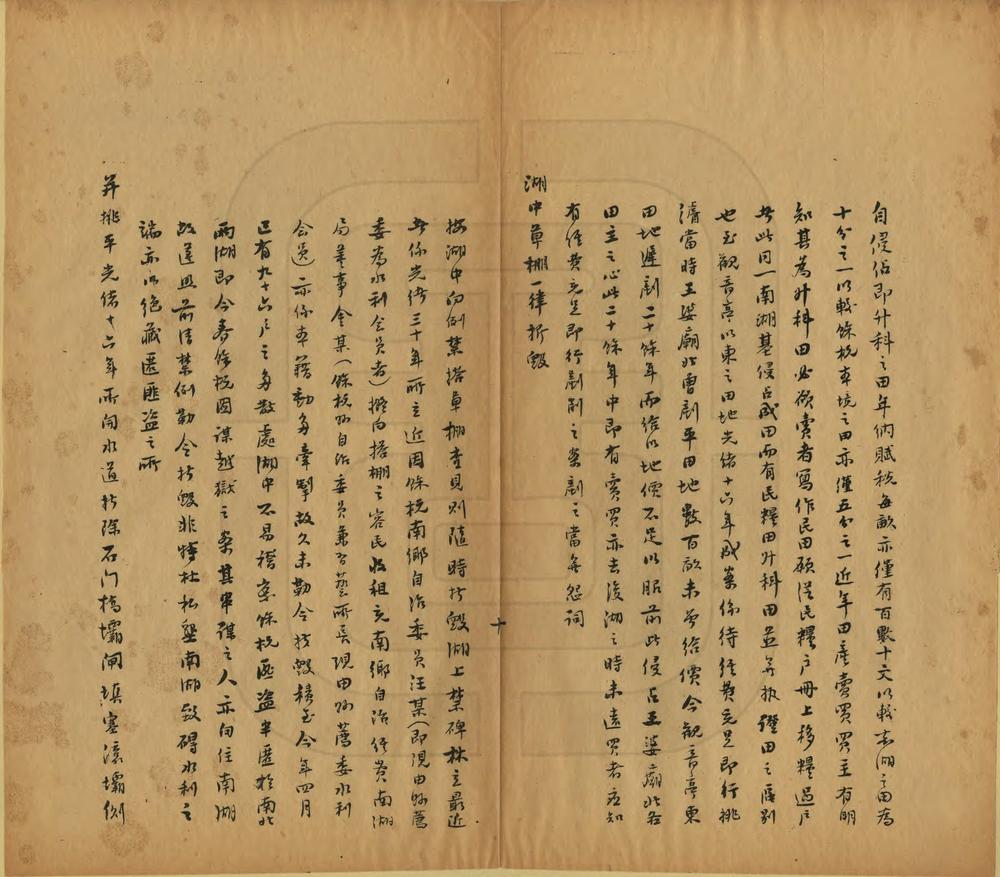 自侵佔即升科之田年納賦稅每畝亦僅有百數十文以較去湖之田為
十分之一以較餘杭本境之田亦僅五分之一近年田產賣買買主有明
知其為升科田必欲賣者寫作民田願從民糧戶冊上移糧過戶
者此同一南湖基侵占成田而有民糧田升科田並無執糧田之區別
也至觀音亭以東之田地光緒十六年成案係待經費充足即行挑
濬當時王婆廟北曾剷平田地數百畝未曾給價今觀音亭東
田地遲剷二十餘年而給以地價不足以昭前此侵占王婆廟北各
田主之心此二十餘年中即有賣買亦去浚湖之時未遠買者應知
有經費充足即行剷削之案剷之當無怨詞
湖中草棚一律拆毀
按湖中向例禁搭草棚查見則隨時拆毀湖上禁碑林立最近
者係光緒三十年所立近因餘杭南鄉自治委員汪某(即現由縣薦
委為水利會員者)撥向搭棚之客民收租充南鄉自治經費南湖
局董事金某(餘杭縣自治委員兼習藝所長現由縣薦委水利
會員)亦係本籍動多牽掣故久未勒令拆毀積至今年四月
已有九十六戶之多散處湖中不易稽察餘杭匪盜半匿於南北
兩湖即今春餘杭圖謀越獄之案其串謀之人亦向住南湖
故遵照前清禁例勒令拆毀非特杜私墾南湖致碍水利之
端亦以絕藏匿匪盜之所
並挑平光緒十六年所開水道拆除石門橋壩閘填塞滾壩側
十